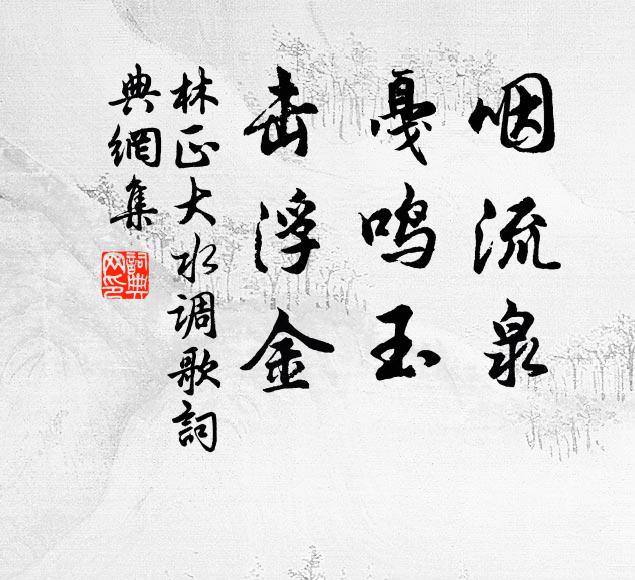 咽流泉
戛鸣玉
击浮金
林正大水调歌詞
典網集
詞典
网印